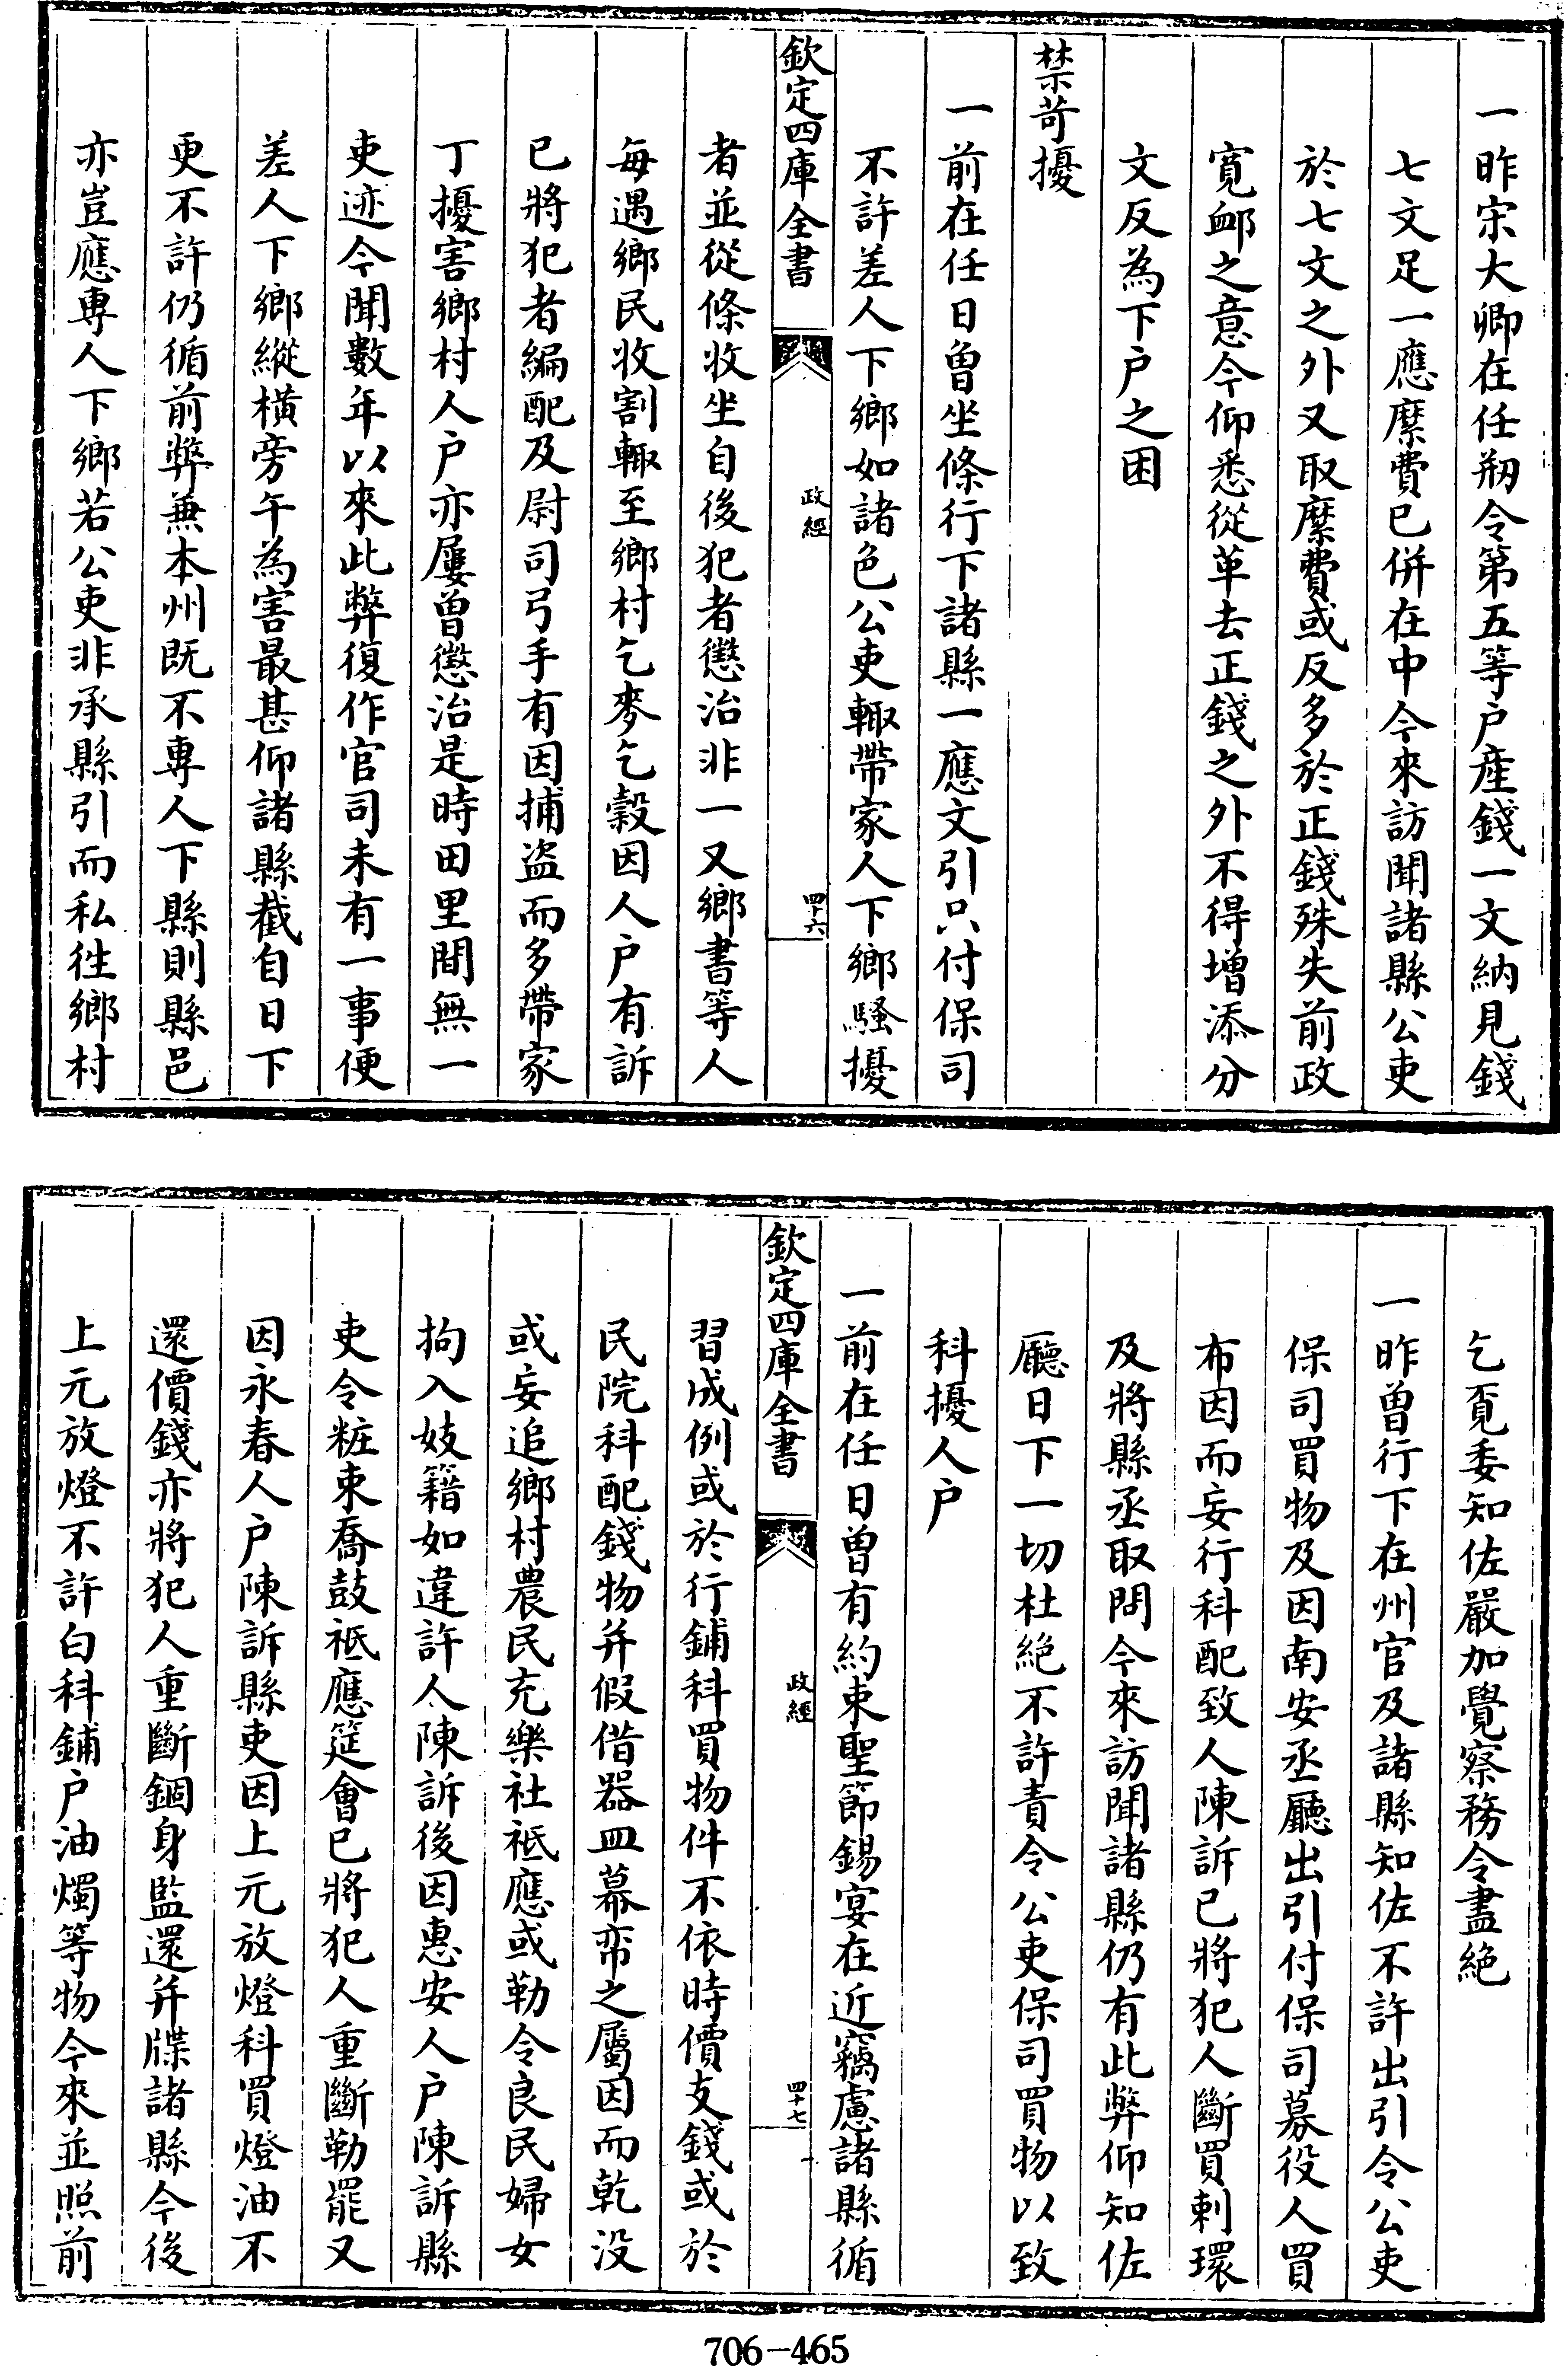 一昨宋大卿在任剏令第五等户産錢一文納見錢
七文足一應縻費已併在中今來訪聞諸縣公吏
於七文之外又取縻費或反多於正錢殊失前政
寛䘏之意今仰悉從革去正錢之外不得增添分
文反為下户之困
禁苛擾
一前在任日曽坐條行下諸縣一應文引只付保司
不許差人下鄉如諸色公吏輙帶家人下鄉騷擾
欽定四庫全書
政經
四十六
者並從條收坐自後犯者懲治非一又鄉書等人
每遇鄉民收割輙至鄉村乞麥乞穀因人户有訴
已將犯者編配及尉司弓手有因捕盜而多帶家
丁擾害鄉村人户亦屢曽懲治是時田里間無一
吏迹今聞數年以來此弊復作官司未有一事便
差人下鄉縱橫旁午為害最甚仰諸縣截自日下
更不許仍循前弊兼本州既不專人下縣則縣邑
亦豈應專人下鄉若公吏非承縣引而私徃鄉村
乞覔委知佐嚴加覺察務令盡絶
一昨曽行下在州官及諸縣知佐不許出引令公吏
保司買物及因南安丞廳出引付保司募役人買
布因而妄行科配致人陳訴已將犯人斷買剌環
及將縣丞取問今來訪聞諸縣仍有此弊仰知佐
廳日下一切杜絶不許責令公吏保司買物以致
科擾人户
一前在任日曽有約束聖節錫宴在近竊慮諸縣循
欽定四庫全書
政經
四十七
習成例或於行鋪科買物件不依時價支錢或於
民院科配錢物并假借器皿幕帟之屬因而乾没
或妄追鄉村農民充樂社祗應或勒令良民婦女
拘入妓籍如違許人陳訴後因惠安人户陳訴縣
吏令粧束喬鼓祗應筵會已將犯人重斷勒罷又
因永春人户陳訴縣吏因上元放燈科買燈油不
還價錢亦將犯人重斷錮身監還并牒諸縣今後
上元放燈不許白科鋪户油燭等物今來並照前
706-465